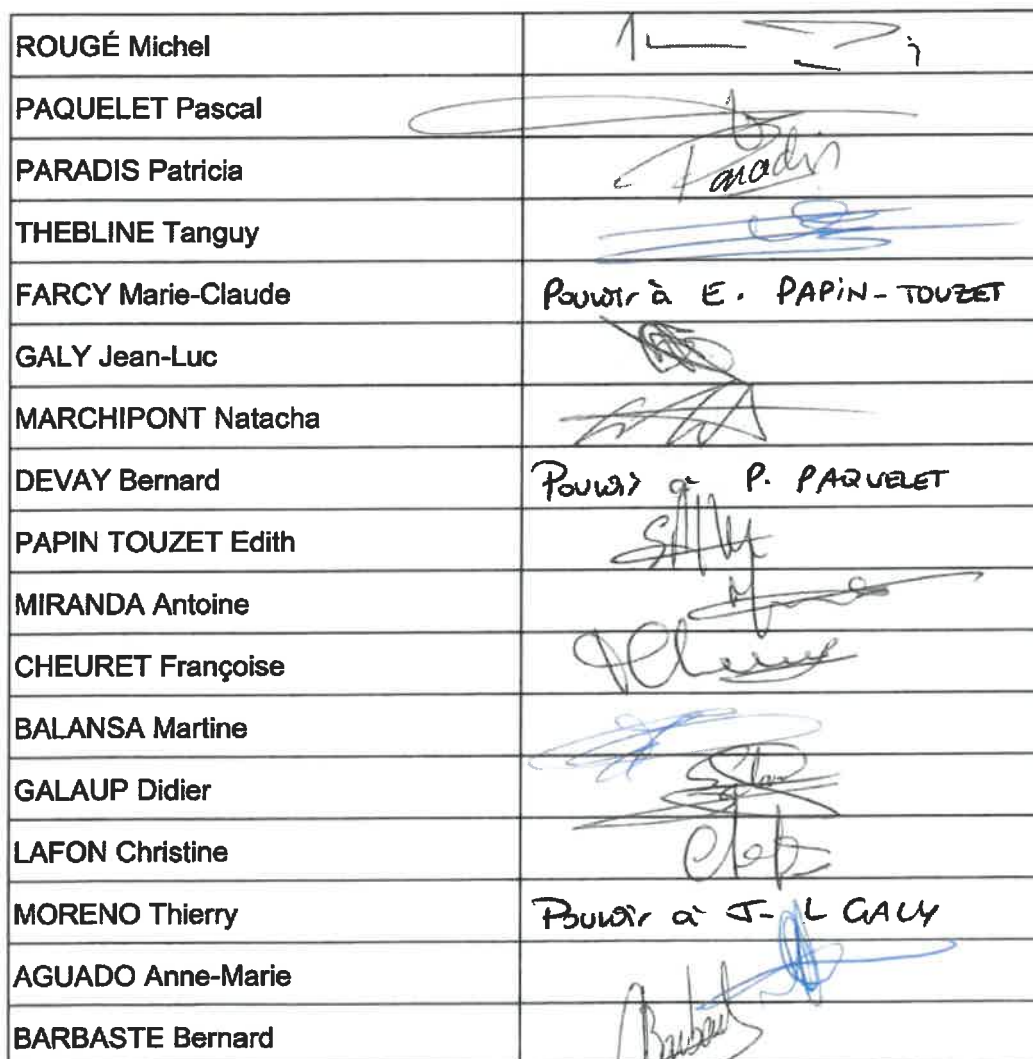 ROUGÉ Michel
PAQUELET Pascal
PARADIS Patricia Paradis
THEBLINE Tanguy
FARCY Marie-Claude Pouvoir à E. PAPIN-TOUZET
GALY Jean-Luc
MARCHIPONT Natacha
DEVAY Bernard Pouvoir à P. PAQUELET
PAPIN TOUZET Edith
MIRANDA Antoine
CHEURET Françoise
BALANSA Martine
GALAUP Didier
LAFON Christine
MORENO Thierry Pouvoir à J-L GALY
AGUADO Anne-Marie
BARBASTE Bernard